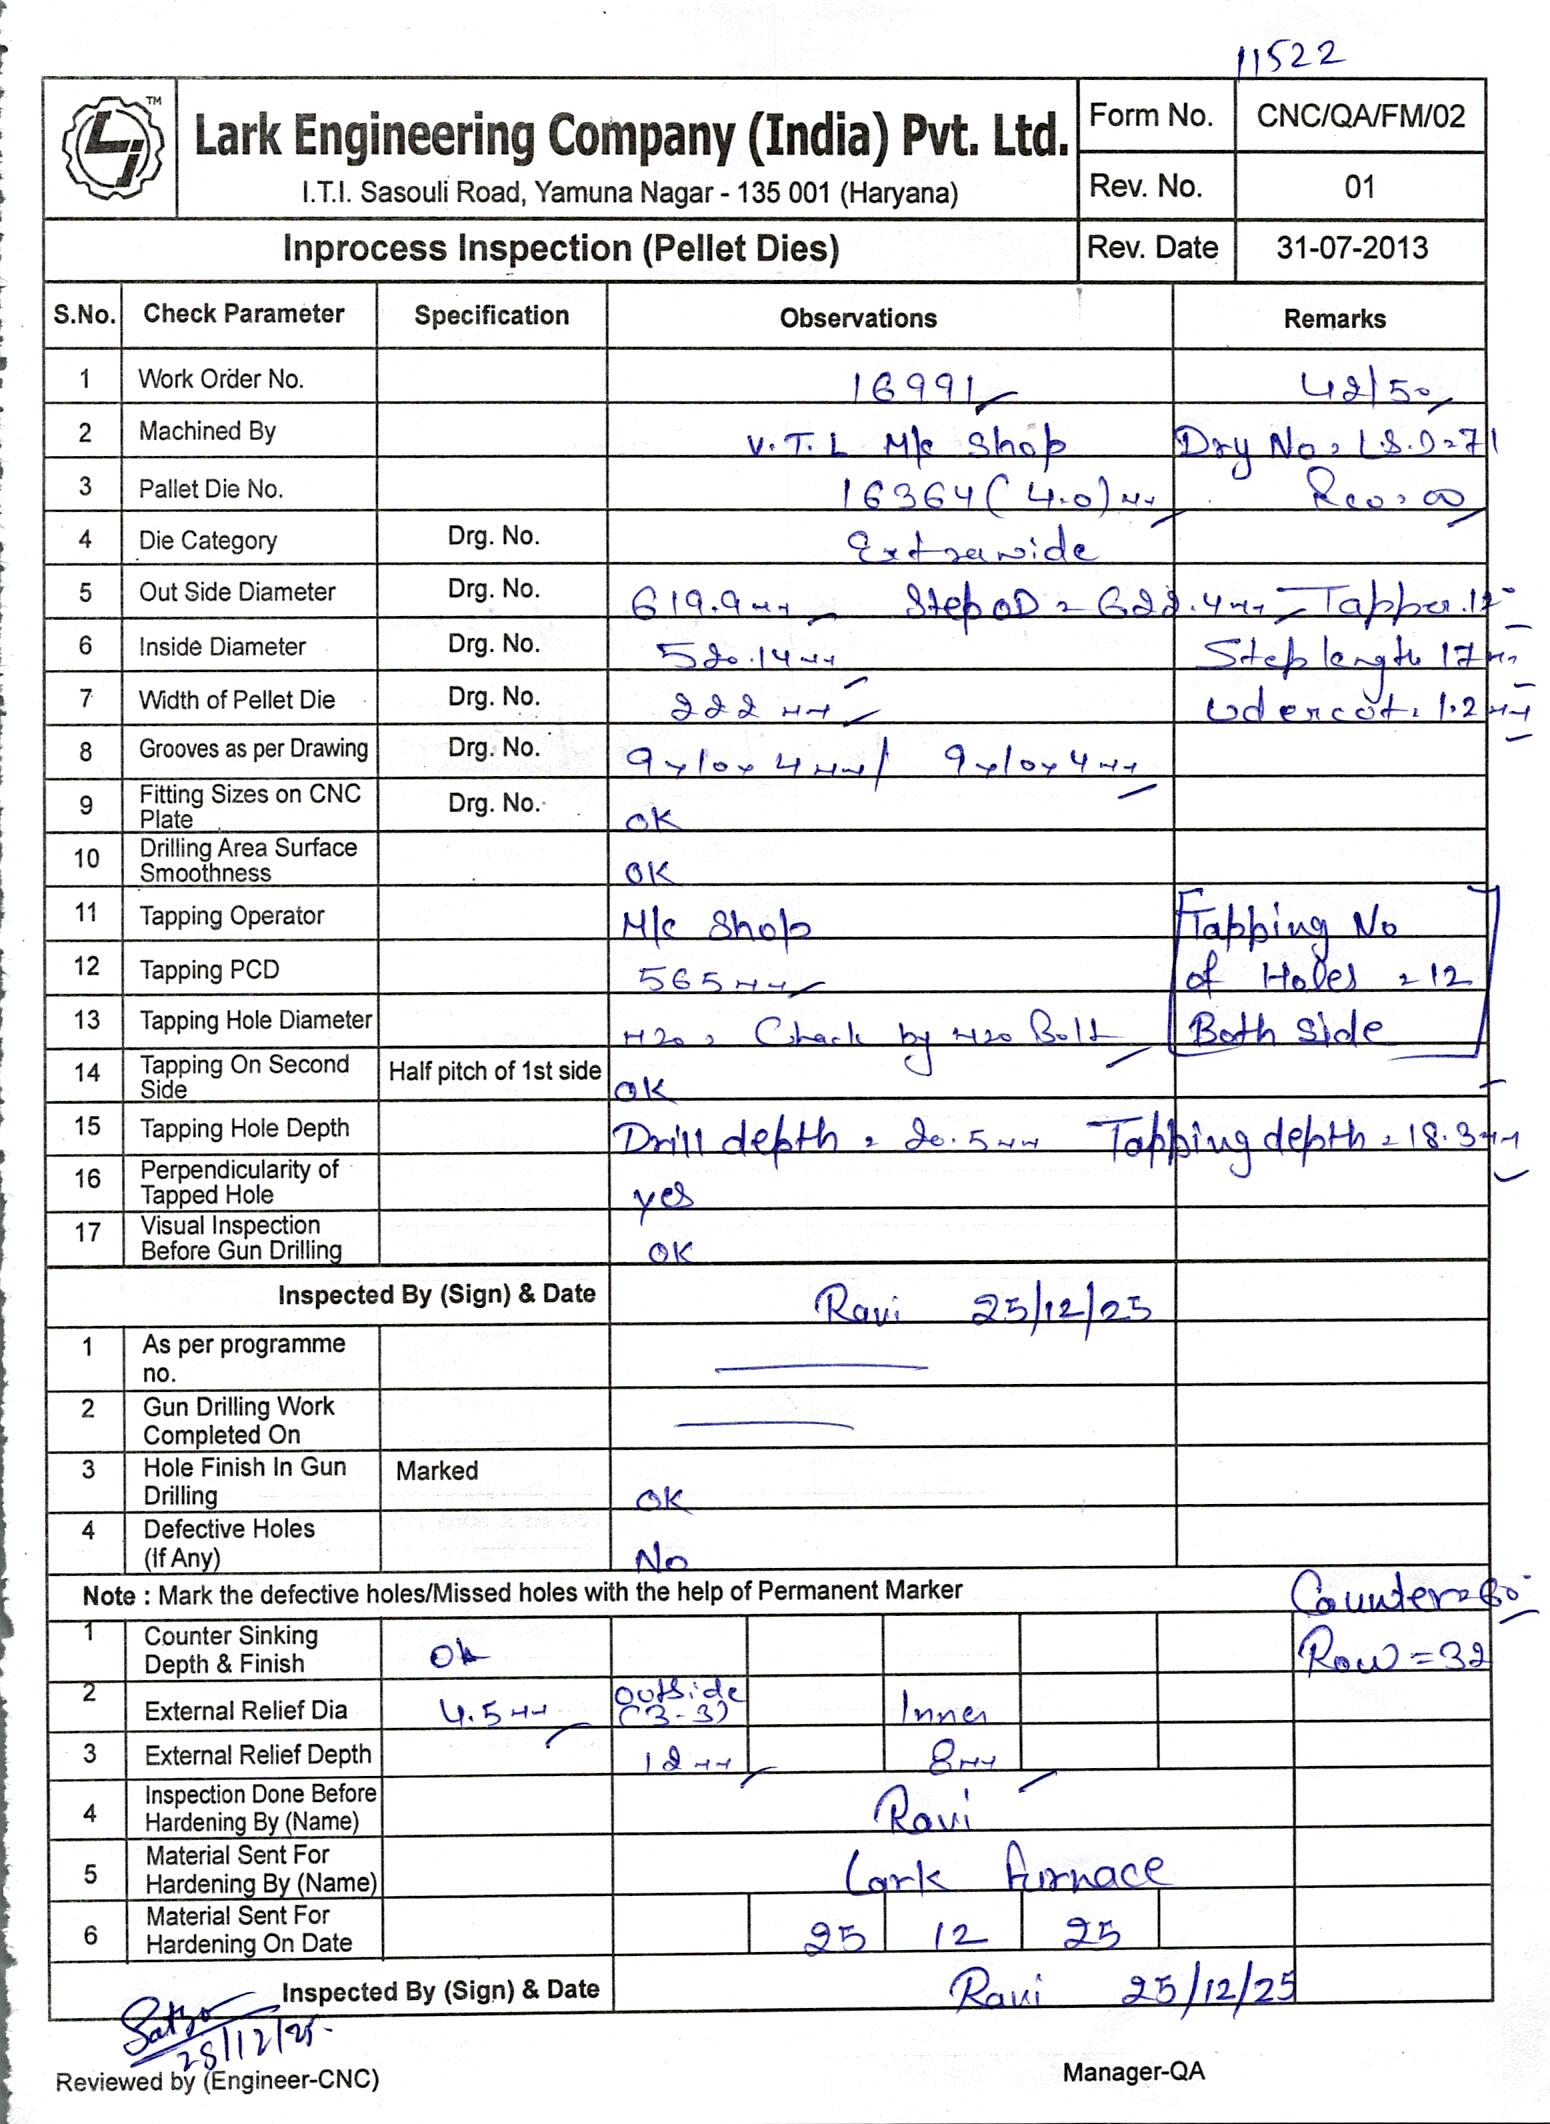 11522
TM
Lark Engineering Company (India) Pvt. Ltd.
I.T.I. Sasouli Road, Yamuna Nagar - 135 001 (Haryana)
Form No. CNC/QA/FM/02
Rev. No. 01
Inprocess Inspection (Pellet Dies) Rev. Date 31-07-2013
S.No. Check Parameter Specification Observations Remarks
1 Work Order No. 16991 42/50
2 Machined By V.T.L M/c Shop Drg No = L.S.D=71
3 Pallet Die No. 16364 (4.0) mm Rev = 00
4 Die Category Drg. No. Extrawide
5 Out Side Diameter Drg. No. 619.9mm Step OD = 622.4mm Tapper.12°
6 Inside Diameter Drg. No. 520.14mm Step length 17mm
7 Width of Pellet Die Drg. No. 222 mm Udercot = 1.2mm
8 Grooves as per Drawing Drg. No. 9x10x4mm/ 9x10x4mm
9 Fitting Sizes on CNC Plate Drg. No. OK
10 Drilling Area Surface Smoothness OK
11 Tapping Operator M/c Shop Tapping No
12 Tapping PCD 565mm of Holes = 12
13 Tapping Hole Diameter M20 = Chack by M20 Bolt Both Side
14 Tapping On Second Side Half pitch of 1st side OK
15 Tapping Hole Depth Drill depth = 20.5mm Tapping depth = 18.3mm
16 Perpendicularity of Tapped Hole yes
17 Visual Inspection Before Gun Drilling OK
Inspected By (Sign) & Date Ravi 25/12/25
1 As per programme no.
2 Gun Drilling Work Completed On
3 Hole Finish In Gun Drilling Marked OK
4 Defective Holes (If Any) No
Note : Mark the defective holes/Missed holes with the help of Permanent Marker Counter=60°
1 Counter Sinking Depth & Finish Ok Row = 32
2 External Relief Dia 4.5mm Outside (3-3) Inner
3 External Relief Depth 12mm 8mm
4 Inspection Done Before Hardening By (Name) Ravi
5 Material Sent For Hardening By (Name) Lark Furnace
6 Material Sent For Hardening On Date 25 12 25
Inspected By (Sign) & Date Ravi 25/12/25
28/12/25.
Reviewed by (Engineer-CNC) Manager-QA